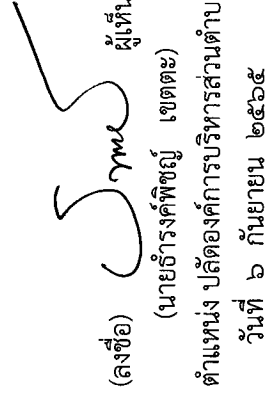 (ลงชื่อ) ผู้เห็น
(นายธำรงค์พิชญ์ เขตตะ)
ตำแหน่ง ปลัดองค์การบริหารส่วนตำบ
วันที่ ๖ กันยายน ๒๕๖๕